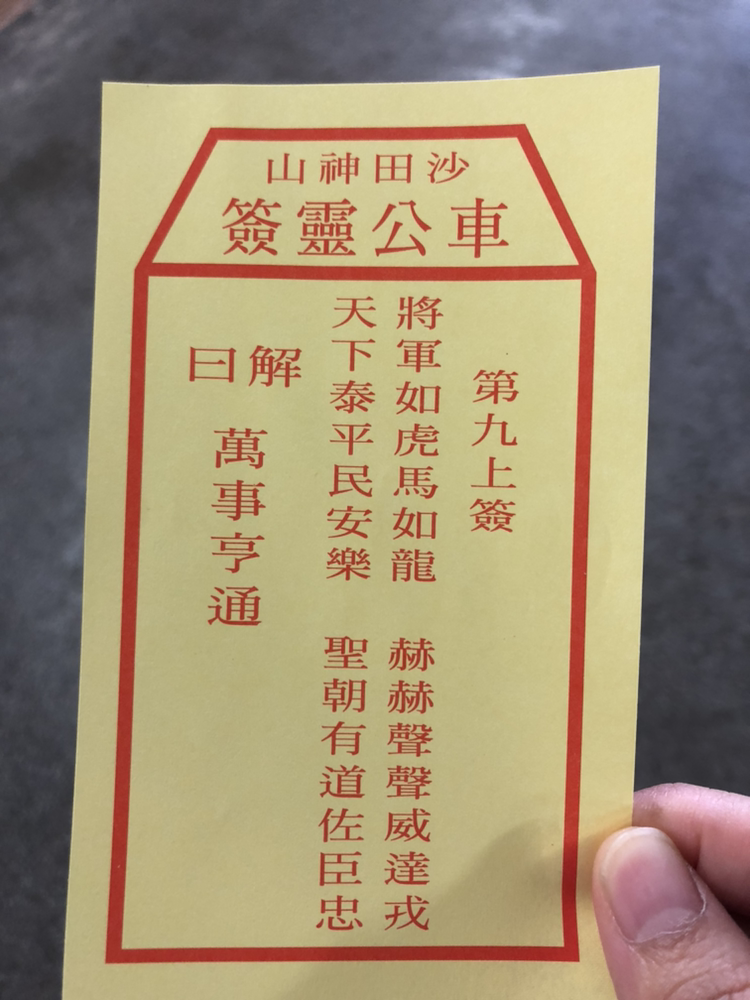 沙田神山
車公靈簽
第九上簽
將軍如虎馬如龍 赫赫聲聲威達戎
天下泰平民安樂 聖朝有道佐臣忠
解曰
萬事亨通